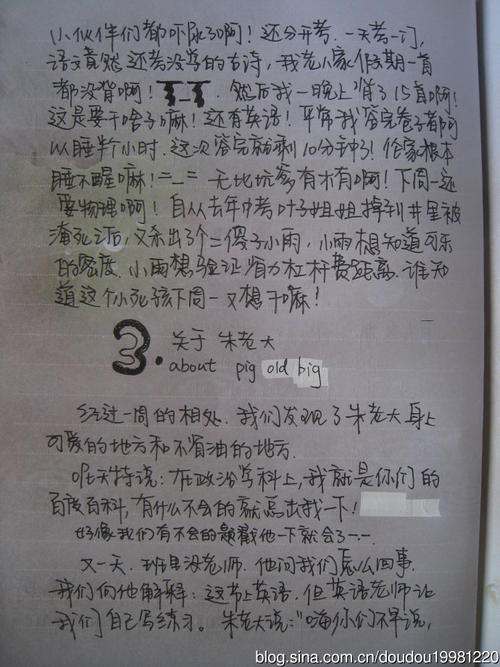 小伙伴们都吓尿了啊！还分开考.一天考一门,
语文竟然还考没学的古诗,我老人家假期一首
都没背啊！T_T.然后我一晚上背了15首啊！
这是要干啥子嘛！还有英语！平常我答完卷子都可
以睡半小时.这次答完就剩10分钟了！俺家根本
睡不醒嘛！=_=无比坑爹有木有啊！下周一还
要物理啊！自从去年中考叶子姐姐掉到井里被
淹死之后,又杀出了个二傻子小雨,小雨想知道可乐
的密度.小雨想验证省力杠杆费距离.谁知
道这个小死孩下周一又想干嘛！
3.关于朱老大
about pig old big
经过一周的相处.我们发现了朱老大身上
可爱的地方和不省油的地方.
昨天特说:在政治学科上,我就是你们的
百度百科,有什么不会的就点击我一下！
好像我们有不会的题戳他一下就会了一.一.
又一天.班里没老师.他问我们怎么回事.
我们向他解释:这节上英语.但英语老师让
我们自己写练习。朱老大说:"嗨你们不早说,
blog.sina.com.cn/doudou19981220